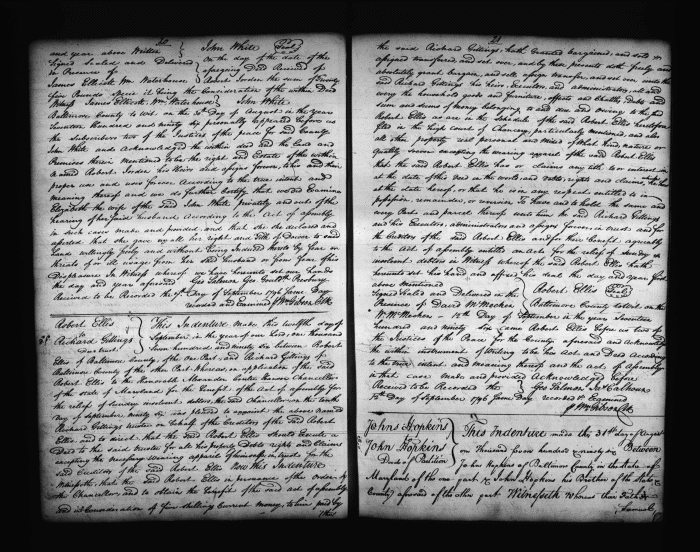 50
and year above Written John White Seal
Signed Sealed and Delivered on the day of the date of the
in Presence of aforegoing Deed Received of
James Elliott Wm Waterhouse Robert Jordon the sum of Twenty
five Pounds Specie it being the Consideration of the within Deed
Witness James Elliott, Wm Waterhouse John White
Baltimore County to wit on the 30th Day of August in the year
Seventeen Hundred and Ninety six personally appeared before us
the Subscribers two of the Justices of the peace for said County
John White and Acknowledged the within deed and the Land and
Premises therein mentioned to be the right and Estate of the within
named Robert Jordon his Heirs and assigns forever, to his and their
proper use and uses forever According to the true intent and
meaning thereof and we do further Certify that we did Examine
Elizabeth the wife of the said John White privately and out of the
hearing of her said husband According to the Act of assembly
in such cases made and provided and that she declared and
asserted that she gave up all her right and title of Dower to said
Lands willingly freely and without being Induced thereto by fear or
threats of or ill usage from her said husband or from fear of his
Displeasure In Witness whereof we have hereunto set our hands
the day and year aforesaid Geo Salmon Geo Gouldh Presbury
Received to be Recorded the 9th Day of September 1796 same Day
recorded and Examined Wm Gibson Clk
Robert Ellis This Indenture made this twelfth day of
Richard Gittings September in the year of our Lord one thousand
Seven hundred and ninety Six between Robert
Ellis of Baltimore County of the one Part, and Richard Gittings of
Baltimore County of the other Part Whereas, on application of the said
Robert Ellis to the Honorable Alexander Contee Hanson Chancellor
of the State of Maryland for the benefit of the Act of assembly for
the relief of sundry insolvent debtors, the said Chancellor, on the tenth
day of September ninety Six was pleased to appoint the above named
Richard Gittings trustee on behalf of the Creditors of the said Robert
Ellis, and to direct that the said Robert Ellis should Execute a
Deed to the said trustee for all his property Debts rights and Claims
excepting the necessary wearing apparel of himself in trust for the
said Creditors of the said Robert Ellis Now this Indenture
Witnesseth, that the said Robert Ellis in pursuance of the order of
the Chancellor, and to obtain the benefit of the said act of assembly
and in Consideration of five shillings Current money, to him paid by
51
the said Richard Gittings, hath Granted bargained, and sold
assigned transferred and set over, and by these presents doth freely and
absolutely grant bargain, and sell assign transfer and set over unto the
said Richard Gittings his Heirs, Executors and administrators, all and
every the household goods and furniture, effects and chattels, Debts and
sum and sums of money belonging to and now due and owing to the said
Robert Ellis as are in the Schedule of the said Robert Ellis heretofore
filed in the high court of Chancery, particularly mentioned, and also
all other property real personal and mixed of What kind, nature or
quality soever excepting the wearing apparel of the said Robert Ellis
that the said Robert Ellis has or claims any title to or interest in
at the date of this deed in the world, and debts, rights and claims, which he has
at the date hereof, or that he is in any respect entitled to in
possession, remainder, or reversion To have and to hold the same and
every Part and parcel thereof unto him the said Richard Gittings
and his Executors, administrators and assigns forever in trust and for
the Creditors of the said Robert Ellis and for their benefit agreeably
to the act of assembly entitled an act for the relief of sundry
insolvent debtors in Witness whereof the said Robert Ellis hath
hereunto set his hand and affixed his seal the day and year first
above Mentioned
Signed Sealed and Delivered in the Robert Ellis Seal
Presence of David McMechen Baltimore County to wit on the
12th Day of September in the year Seventeen
hundred and ninety Six came Robert Ellis before us two of
the Justices of the Peace for the County aforesaid and Acknowledged
the within instrument of Writing to be his Act and Deed according
to the true intent and meaning thereof and the act of assembly
in that case made and provided Acknowledged before
Received to be Recorded the Geo Salmon Jas Calhoun
12th Day of September 1796 same Day recorded & Examined
Wm Gibson Clk
Johns Hopkins This Indenture made the 31st day of August
John Hopkins one Thousand seven hundred & ninety six Between
Deed of Partition Johns Hopkins of Baltimore County in the State of
Maryland of the one part & John Hopkins his Brother of the State &
County aforesaid of the other part Witnesseth Whereas their Father
Samuel